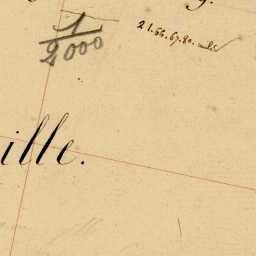 1/2000
21.66.67.80.
ille.